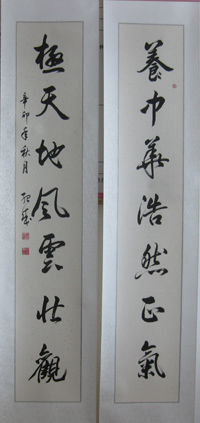 養中華浩然正氣
極天地風雲壯觀
辛卯年秋月